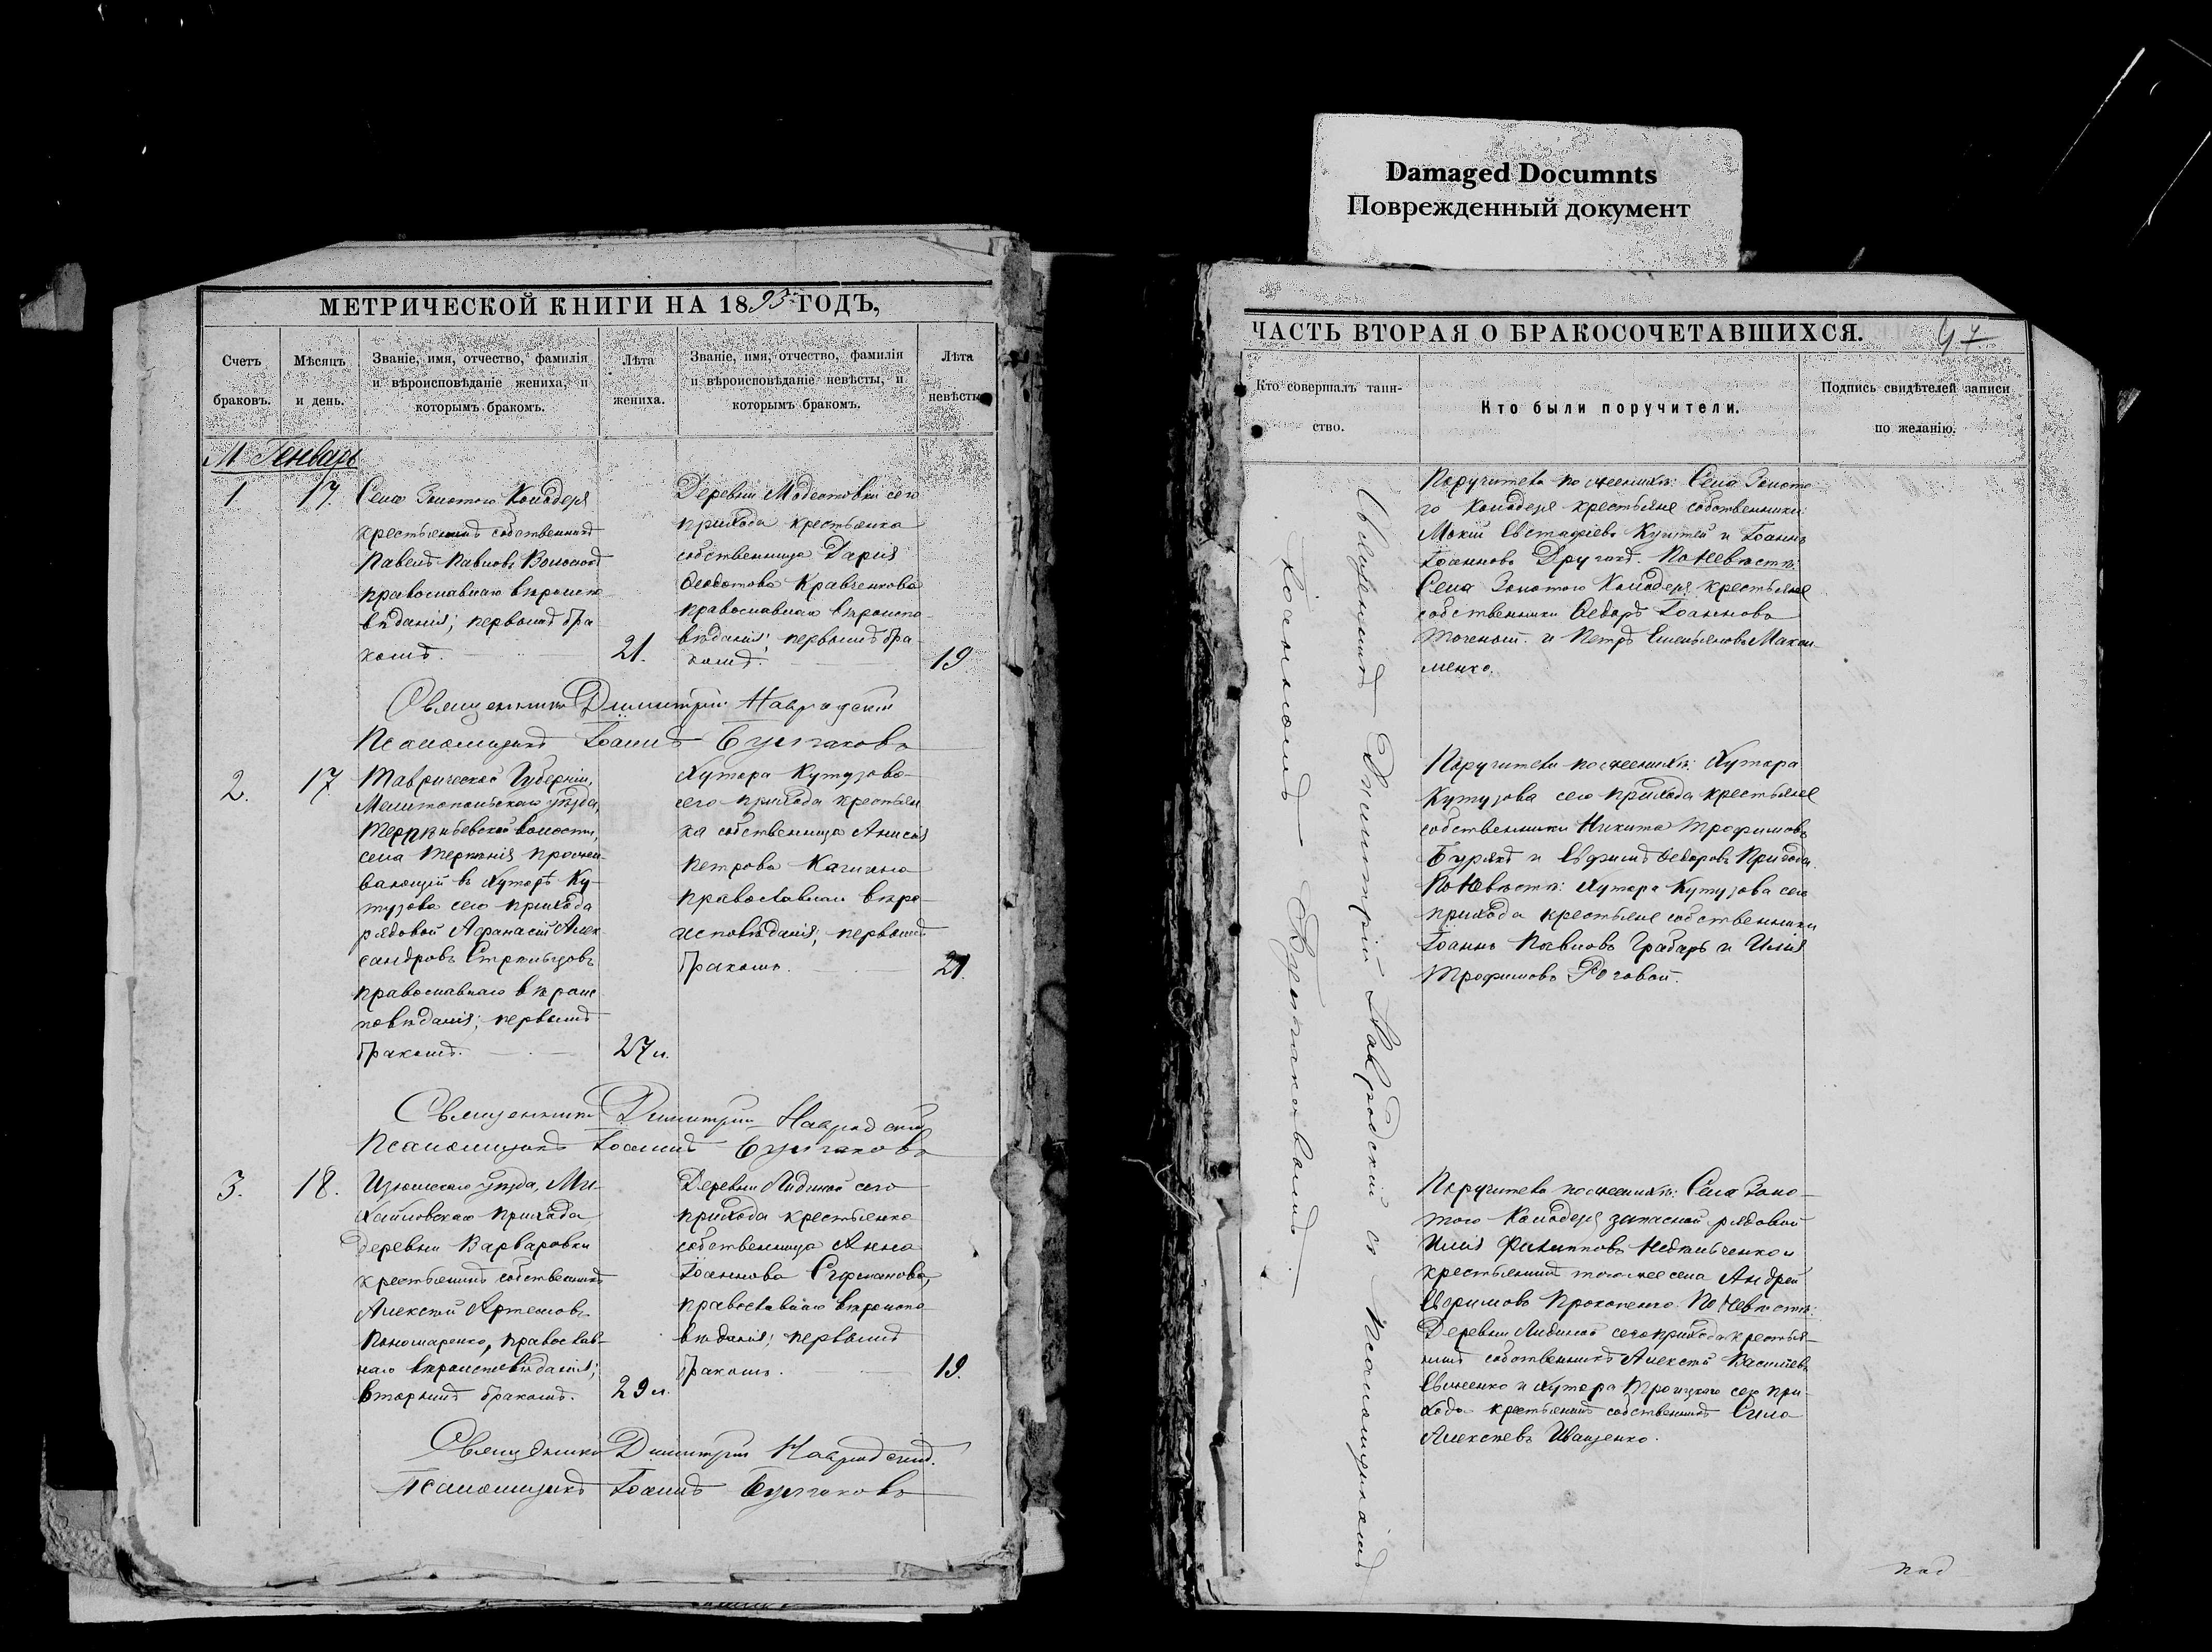 Damaged Documnts
Поврежденный документ
МЕТРИЧЕСКОЙ КНИГИ НА 1893 ГОДЪ,
Счетъ браковъ.
Мѣсяцъ и день.
Званіе, имя, отчество, фамилія
и вѣроисповѣданіе жениха, и
которымъ бракомъ.
Лѣта
жениха.
Званіе, имя, отчество, фамилія
и вѣроисповѣданіе невѣсты, и
которымъ бракомъ.
Лѣта
невѣсты
М. Генварь
1.
17.
Села Золотого Колодезя
крестьянинъ собственникъ
Павелъ Павловъ
православнаго вѣроиспо
вѣданія; первымъ бра
комъ.
21.
Деревни Модестовки сего
прихода крестьянка
собственница Дарія
Ѳеодотова Кравченкова
православнаго вѣроиспо
вѣданія; первымъ бра
комъ.
19
Священникъ Димитрій Навродскій
Псаломщикъ Іоаннъ Булгаковъ
2.
17
Таврической Губерніи,
Мелитопольскаго уѣзда,
Терпѣньевской волости,
села Терпѣнія прожи
вающій въ Хуторѣ Ку
тузова сего прихода
рядовой Афанасій Алек
сандровъ Стрѣльцовъ
православнаго вѣроис
повѣданія; первымъ
бракомъ.
27 л.
Хутора Кутузова
сего прихода крестьян
ка собственница Анисія
Петрова
православнаго вѣро
исповѣданія, первымъ
бракомъ.
21.
Священникъ Димитрій Навродскій
Псаломщикъ Іоаннъ Булгаковъ
3.
18.
Изюмскаго уѣзда, Ми
хайловскаго прихода
деревни Варваровки
крестьянинъ собственникъ
Алексѣй Артемовъ
Пономаренко, православ
наго вѣроисповѣданія;
вторымъ бракомъ.
29 л.
Деревни Лидиной сего
прихода крестьянка
собственница Анна
Іоаннова
православнаго вѣроиспо
вѣданія; первымъ
бракомъ.
19.
Священникъ Димитрій Навродскій.
Псаломщикъ Іоаннъ Булгаковъ
ЧАСТЬ ВТОРАЯ О БРАКОСОЧЕТАВШИХСЯ.
47
Кто совершалъ таин-
ство.
Кто были поручители.
Подпись свидѣтелей записи
по желанію.
Священникъ Димитрій Навродскій съ псаломщикомъ
Іоанномъ Булгаковымъ.
Поручители по женихѣ: Села Золото
го Колодезя крестьяне собственники:
Мокій Евстафіевъ и Іоаннъ
Іоанновъ По невѣстѣ:
Села Золотого Колодезя крестьяне
собственники Ѳедоръ Іоанновъ
и Петръ Емельяновъ Макси
менко.
Поручители по женихѣ: Хутора
Кутузова сего прихода крестьяне
собственники Никита Трофимовъ
Бурякъ и Ефимъ Ѳедоровъ
По невѣстѣ: Хутора Кутузова сего
прихода крестьяне собственники
Іоаннъ Павловъ Грабарь и Илія
Трофимовъ Роговой.
Поручители по женихѣ: Села Золо
того Колодезя запасной рядовой
Илія Филипповъ и
крестьянинъ того же села Андрей
Ефимовъ Прокопенко. По невѣстѣ:
Деревни Лидиной сего прихода крестья
нинъ собственникъ Алексѣй Васильевъ
и хутора Троицкаго сего при
хода крестьянинъ собственникъ Сила
Алексѣевъ Иващенко.
под